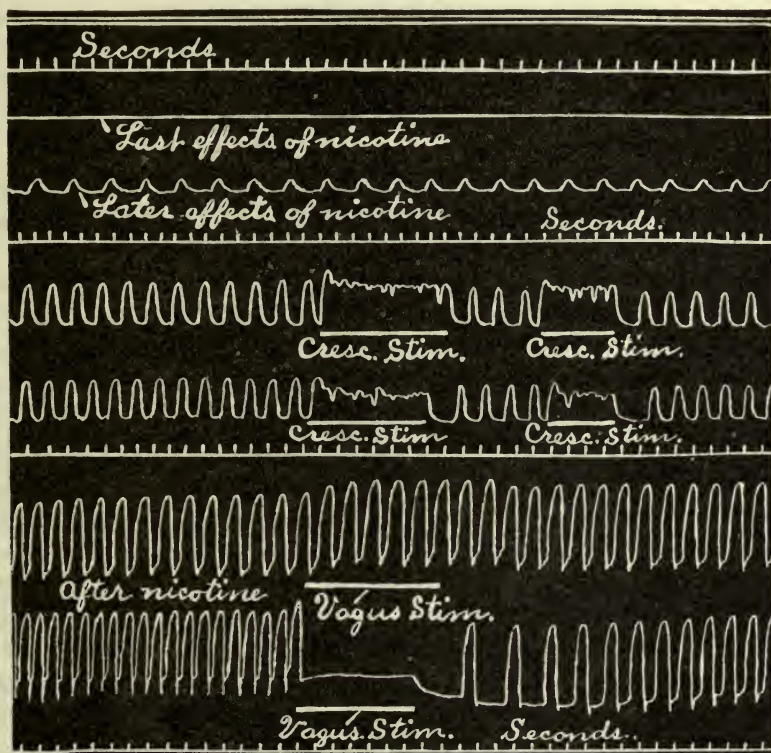 Seconds
Last effects of nicotine
Later affects of nicotine Seconds.
Cresc. Stim. Cresc. Stim.
Cresc. Stim Cresc. Stim.
After nicotine
Vagus Stim.
Vagus. Stim. Seconds..